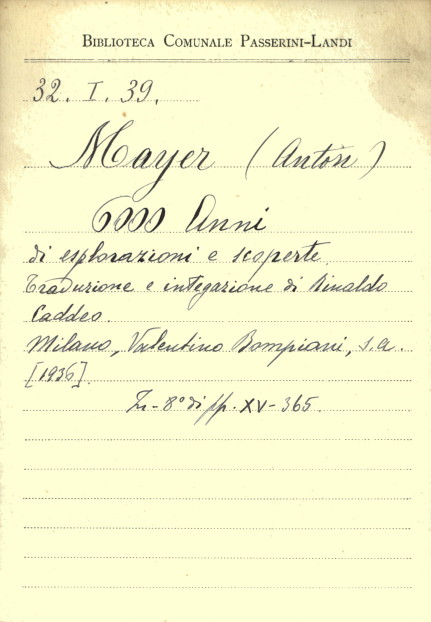 BIBLIOTECA COMUNALE PASSERINI-LANDI
32. I. 39.
Mayer (Anton)
6000 Anni
di esplorazioni e scoperte.
Traduzione e integazione di Rinaldo
Caddeo.
Milano, Valentino Bompiani, s.a.
[1936].
In-8° di pp. XV-365.